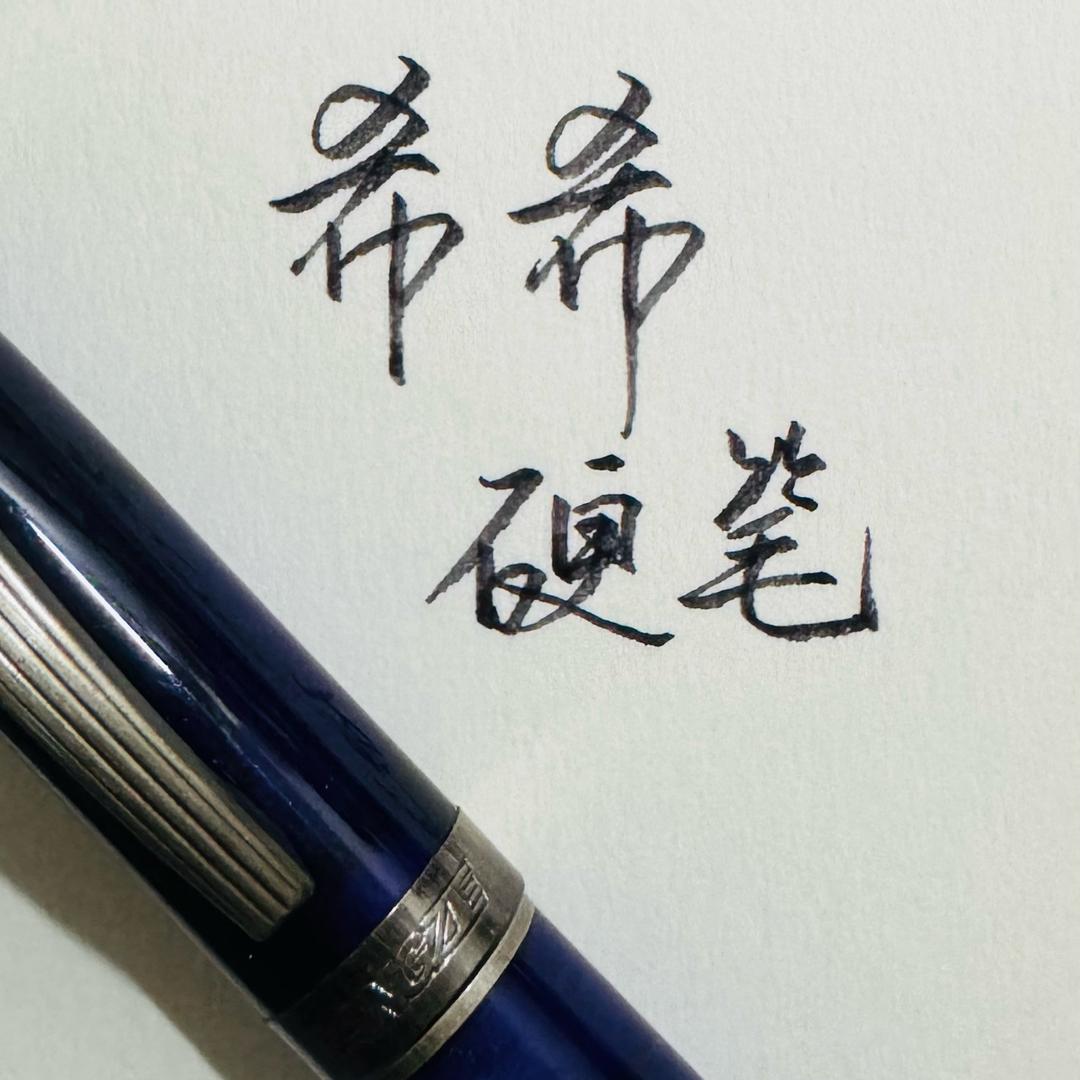 希希
硬笔